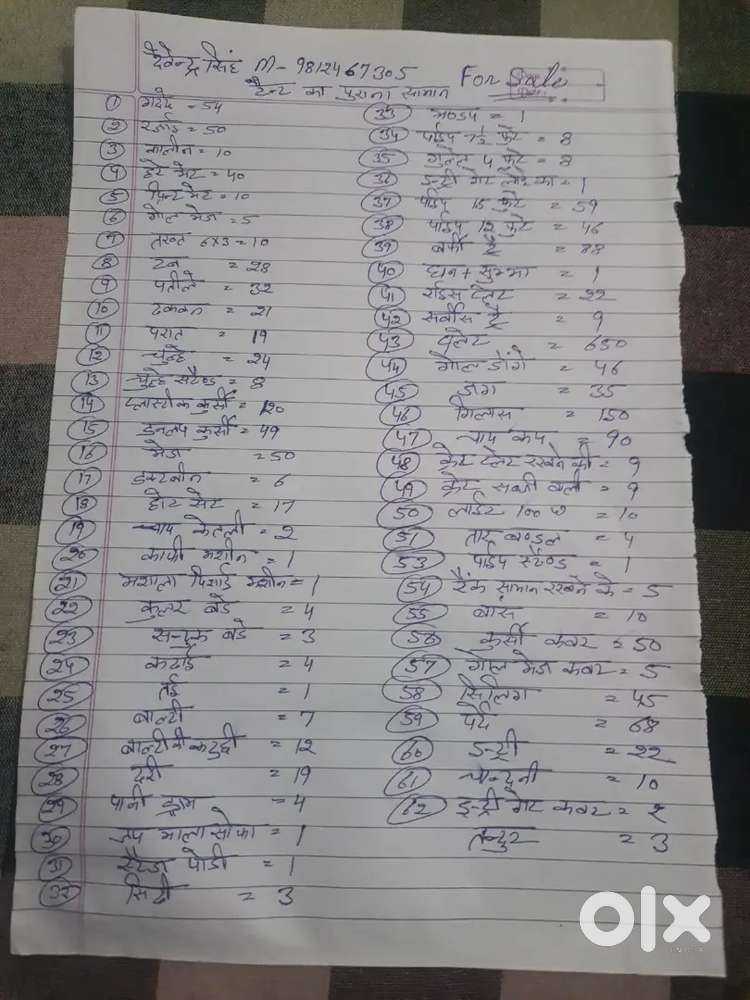 देवेन्द्र सिंह M- 9812467305 For Sale
टैन्ट का पुराना सामान
1 गददे = 54
2 रजाई = 50
3 कालीन = 10
4 हरे मेट = 40
5 प्रिन्ट मेट = 10
6 गोल मेज = 5
7 तखत 6x3 = 10
8 टब = 28
9 पतीले = 32
10 ढक्कन = 21
11 परात = 19
12 चुल्हे = 24
13 चुल्हे स्टैण्ड = 8
14 प्लास्टीक कुर्सी = 120
15 डनलप कुर्सी = 49
16 मेज = 50
17 डस्टबीन = 6
18 होट सेट = 17
19 चाय केतली = 2
20 काफी मशीन = 1
21 मशाला पिसाई मशीन = 1
22 कुलर बडे = 4
23 सन्दुक बडे = 3
24 कढाई = 4
25 तई = 1
26 बाल्टी = 7
27 बाल्टी की कटुछी = 12
28 दरी = 19
29 पानी ड्राम = 4
30 जय माला सोफा = 1
31 स्टैज पोडी = 1
32 सिटी = 3
33 मण्डप = 1
34 पाईप फुट = 8
35 गुलेल 4 फुट = 8
36 इन्ट्री गेट लोहे का = 1
37 पाईप 15 फुट = 59
38 पाईप 12 फुट = 46
39 बर्फी ट्रै = 88
40 घन + सुम्भा = 1
41 राईस प्लेट = 22
42 सर्वीस ट्रै = 9
43 प्लेट = 650
44 गोल डोंगे = 46
45 जग = 35
46 गिलास = 150
47 चाय कप = 90
48 क्रेट प्लेट रखने की = 9
49 क्रेट सब्जी वाली = 9
50 लाईट 100 w = 10
51 तार बण्डल = 4
53 पाईप स्टैण्ड = 1
54 रैंक सामान रखने के = 5
55 बांस = 10
56 कुर्सी कवर = 50
57 गोल मेज कवर = 5
58 सिलिंग = 45
59 पर्दे = 68
60 इन्ट्री = 22
61 चान्दनी = 10
62 इन्ट्री गेट कवर = 2
तन्दुर = 3
olx